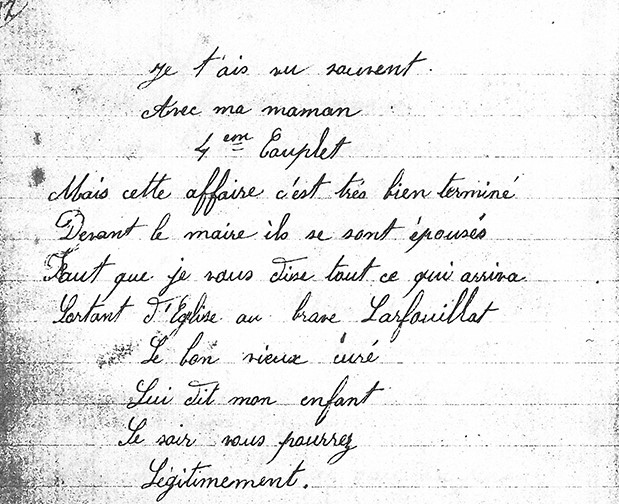 Je t'ais vu souvent.
Avec ma maman
4 em Couplet
Mais cette affaire c'est trés bien terminé
Devant le maire ils se sont épousés
Faut que je vous dise tout ce qui arriva
Sortant d'Eglise au brave Larfouillat
Le bon vieux curé
Lui dit mon enfant
Le soir vous pourrez
Légitimement.